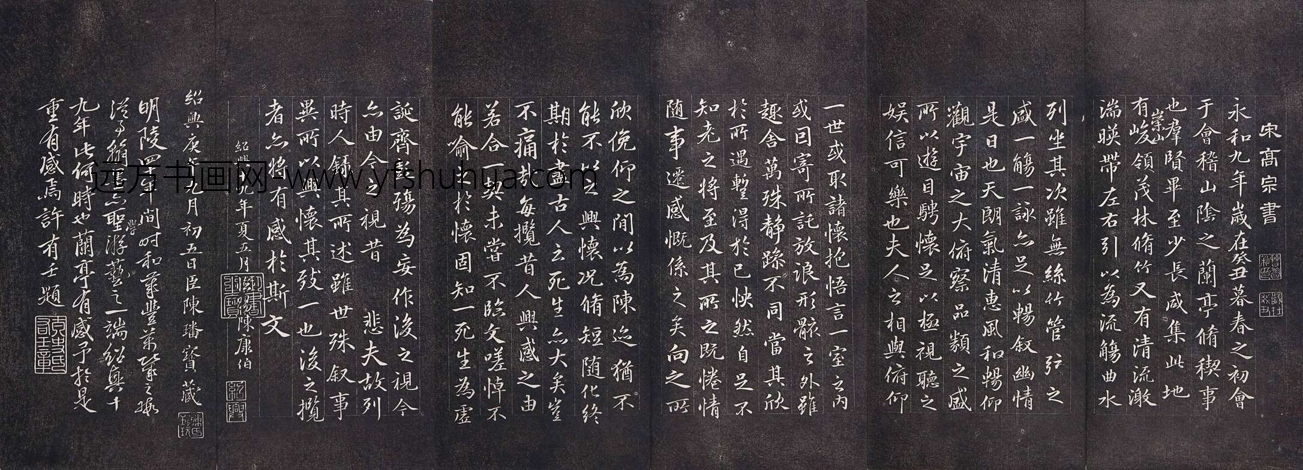 宋高宗書
永和九年歲在癸丑暮春之初會
于會稽山陰之蘭亭脩稧事
也羣賢畢至少長咸集此地
有崇山峻領茂林脩竹又有清流激
湍暎帶左右引以為流觴曲水
列坐其次雖無絲竹管弦之
盛一觴一詠亦足以暢叙幽情
是日也天朗氣清惠風和暢仰
觀宇宙之大俯察品類之盛
所以遊目騁懷足以極視聽之
娛信可樂也夫人之相與俯仰
一世或取諸懷抱悟言一室之內
或因寄所託放浪形骸之外雖
趣舍萬殊靜躁不同當其欣
於所遇暫得於己快然自足不
知老之將至及其所之既惓情
隨事遷感慨係之矣向之所
欣俛仰之間以為陳迹猶不
能不以之興懷況脩短隨化終
期於盡古人云死生亦大矣豈
不痛哉每攬昔人興感之由
若合一契未嘗不臨文嗟悼不
能喻之於懷固知一死生為虛
誕齊彭殤為妄作後之視今
亦由今之視昔 悲夫故列
時人錄其所述雖世殊叙事
異所以興懷其致一也後之攬
者亦將有感於斯文
紹興九年夏五月 陳康伯
紹興庚 九月初五日臣陳璠寶藏
明陵 年間时和
九年此何時也蘭亭有感予於是
重有感焉許有壬題
远方书画网 www.yfshuhua.com